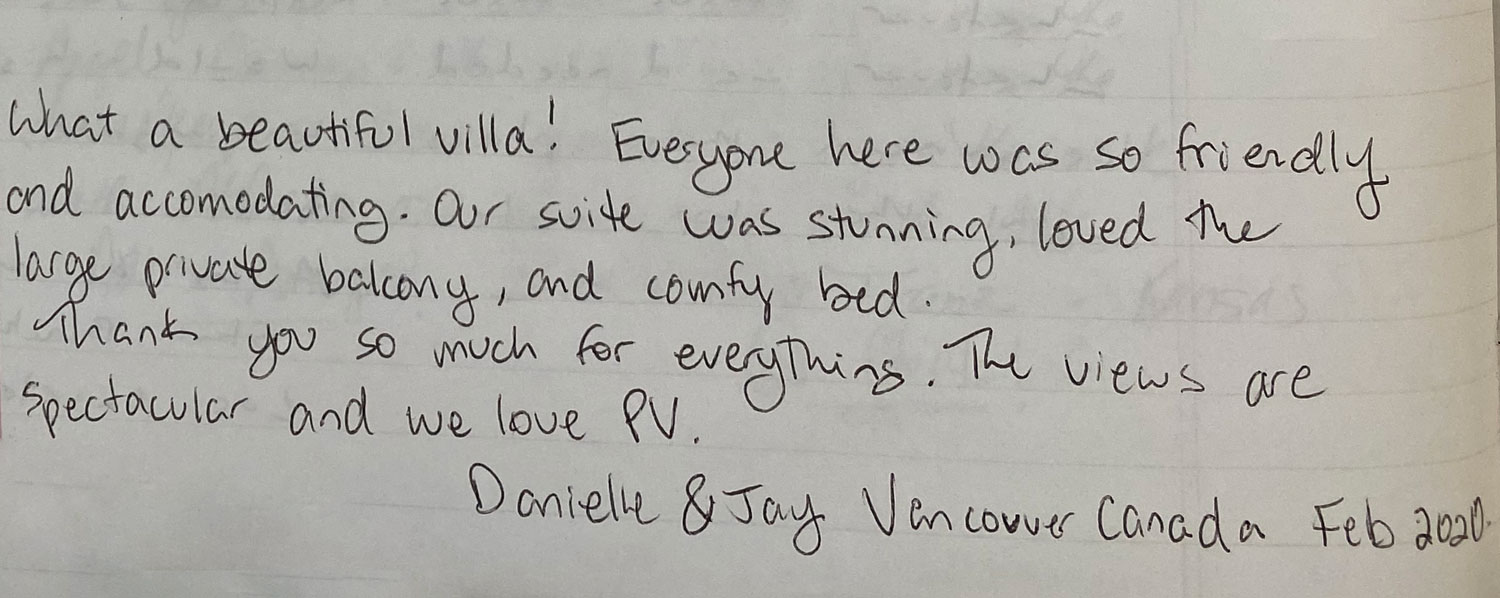 What a beautiful villa! Everyone here was so friendly
and accomodating. Our suite was stunning, loved the
large private balcony, and comfy bed.
Thank you so much for everything. The views are
spectacular and we love PV.
Danielle & Jay Vancouver Canada Feb 2020.